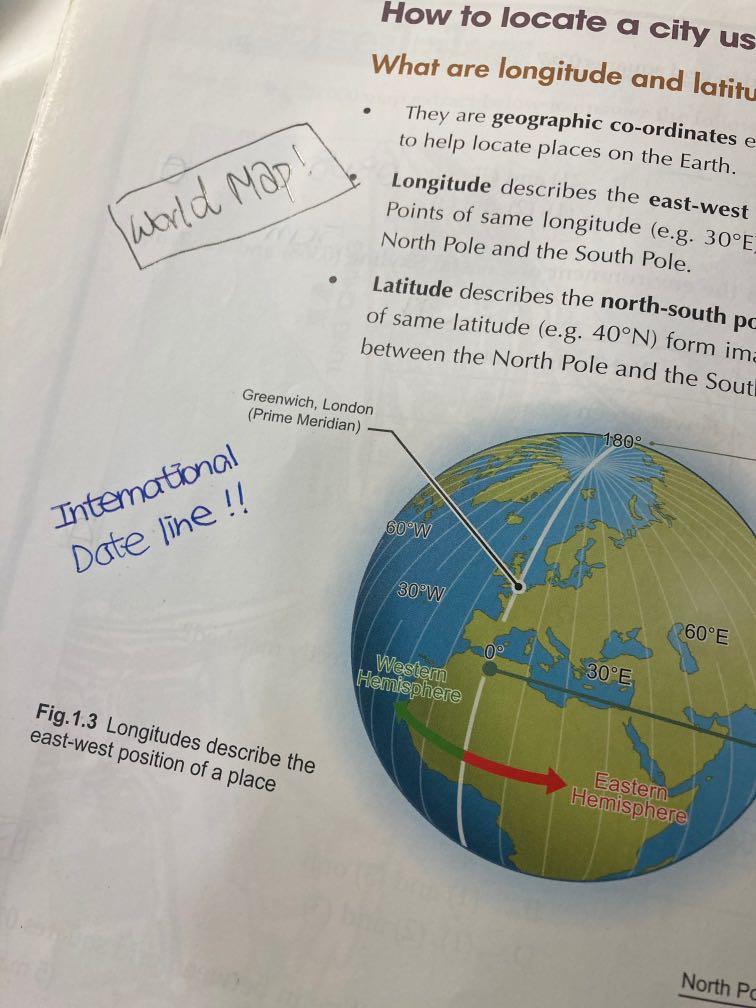 How to locate a city us
What are longitude and latitu
• They are geographic co-ordinates e
to help locate places on the Earth.
World Map!
• Longitude describes the east-west
Points of same longitude (e.g. 30°E
North Pole and the South Pole.
• Latitude describes the north-south po
of same latitude (e.g. 40°N) form ima
between the North Pole and the Sout
Greenwich, London
(Prime Meridian)
180°
International
Date line !!
60°W
30°W
60°E
0°
30°E
Western
Hemisphere
Fig.1.3 Longitudes describe the
east-west position of a place
Eastern
Hemisphere
North Po